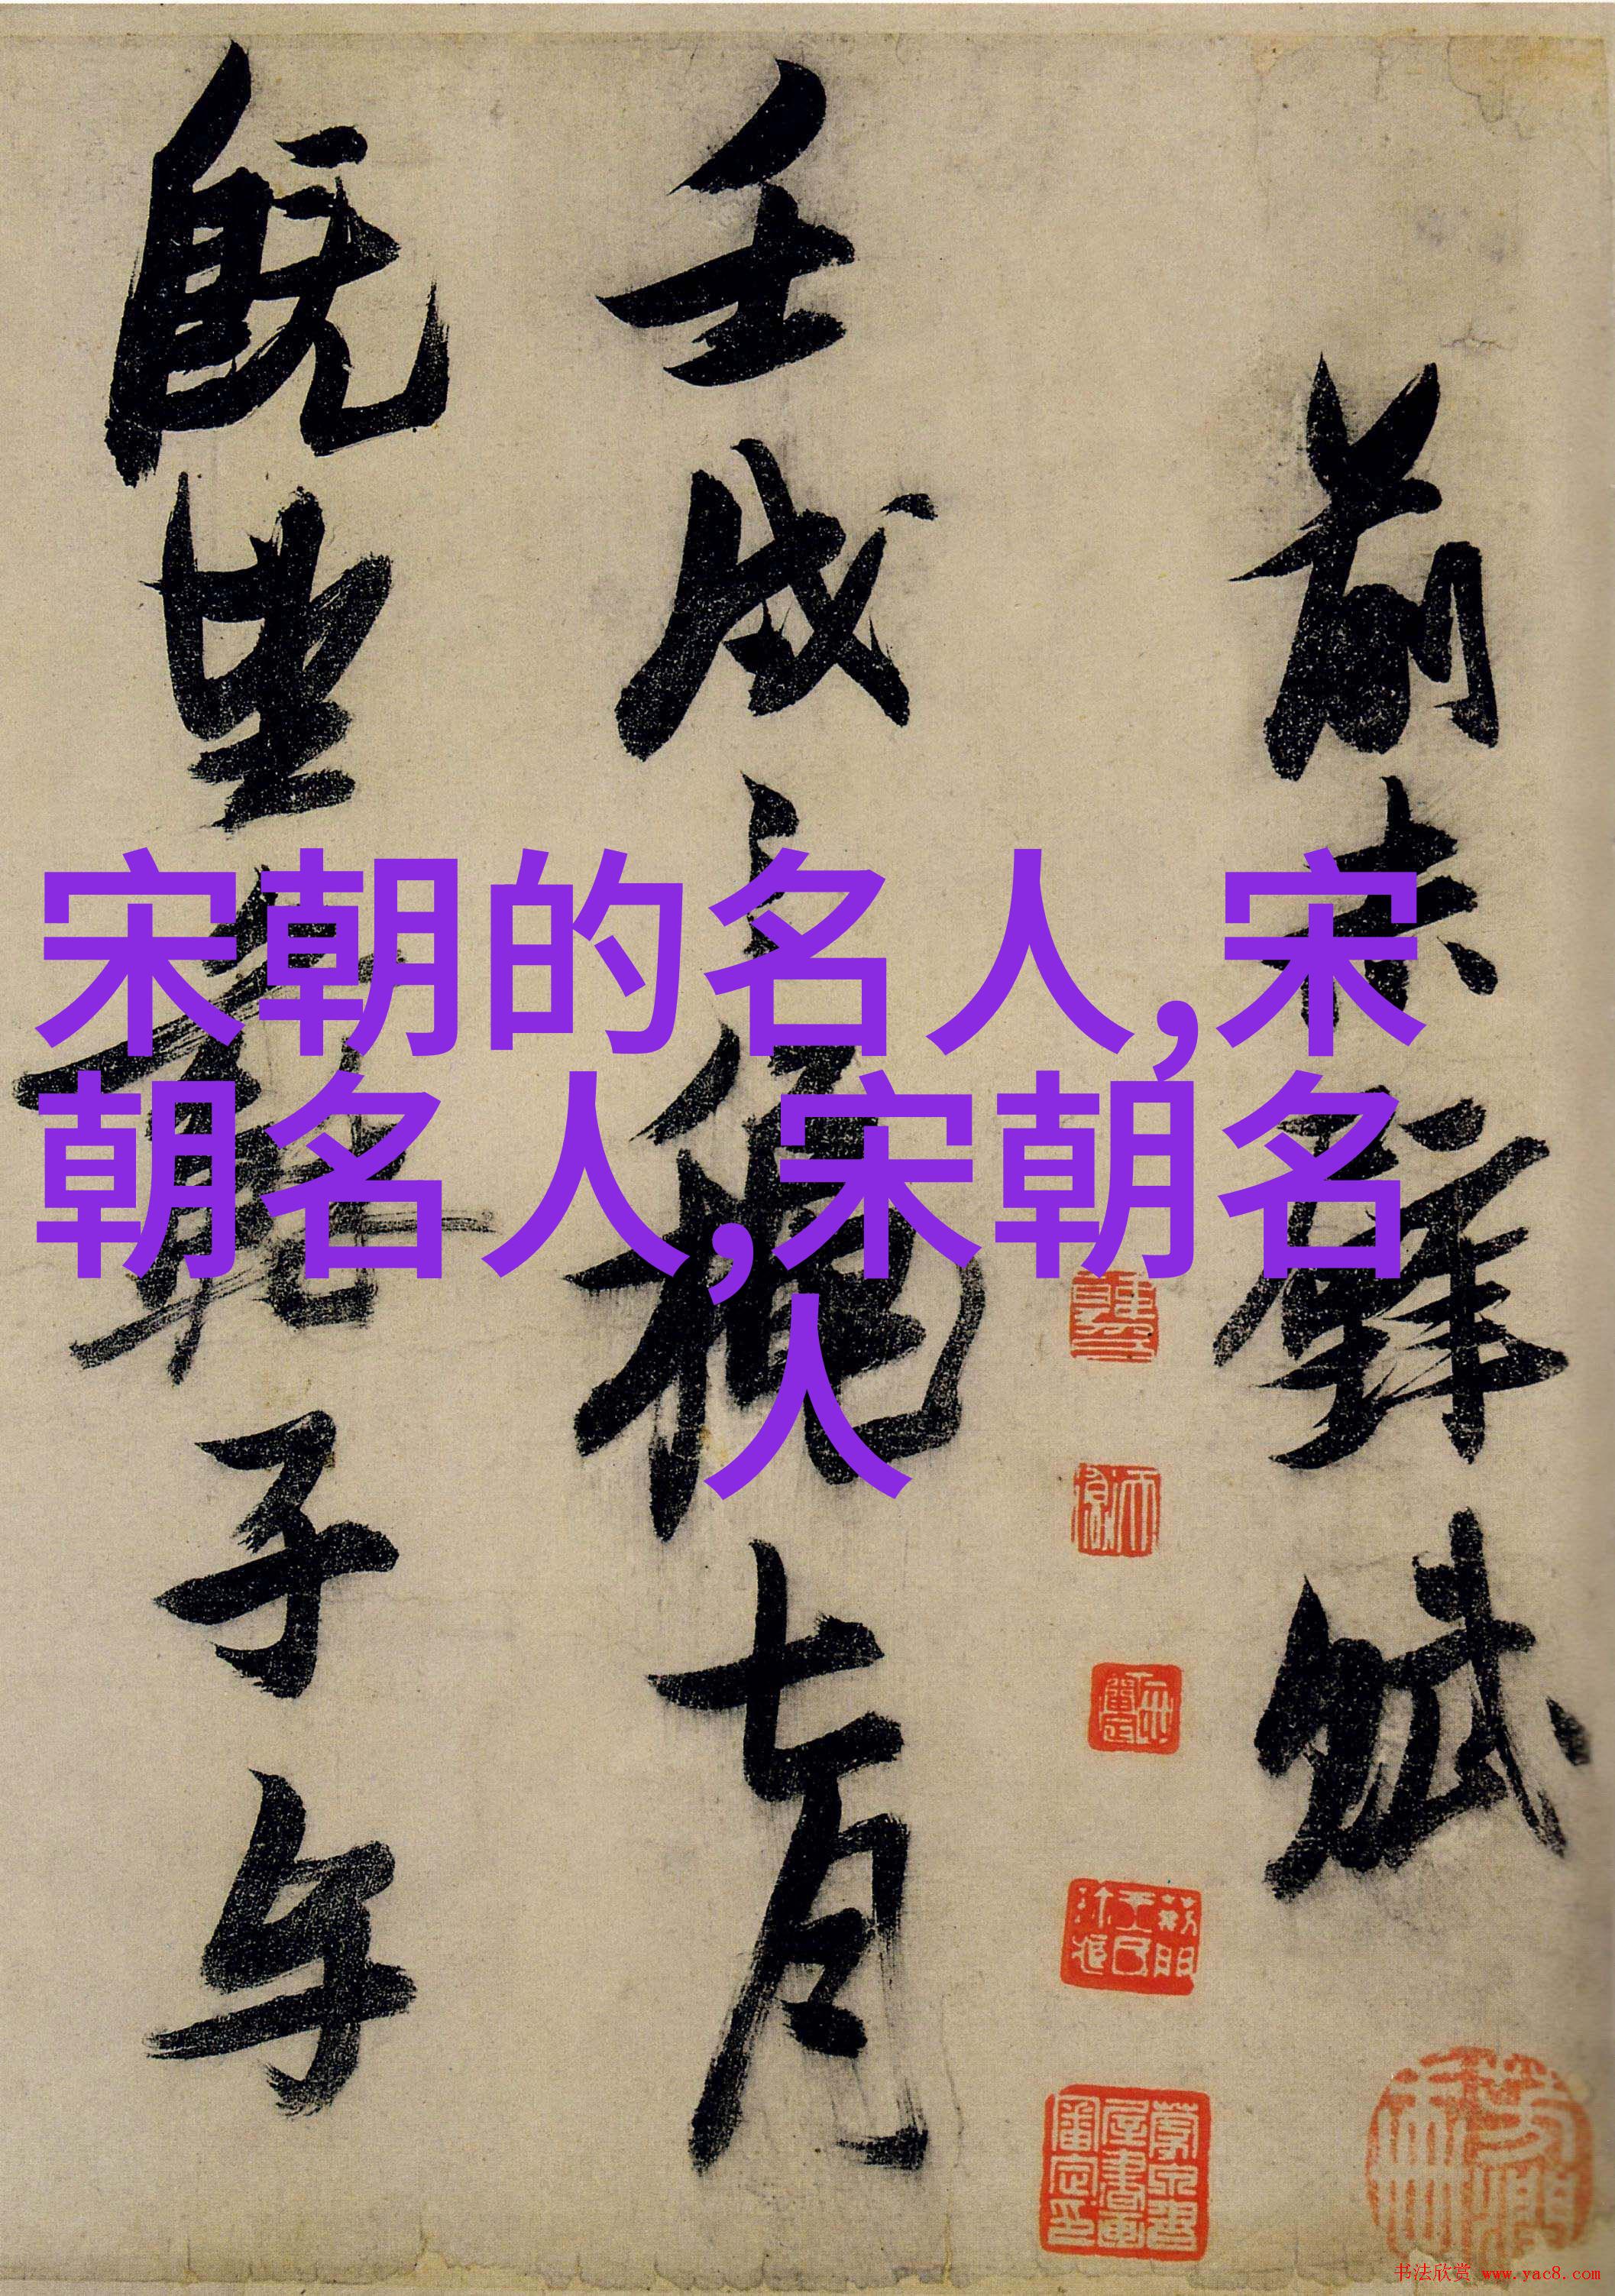 宋朝的名人,宋
朝名人,宋朝名
人
前赤壁賦
壬戌之秋七月
既望蘇子与
书法欣赏 www.yac8.com